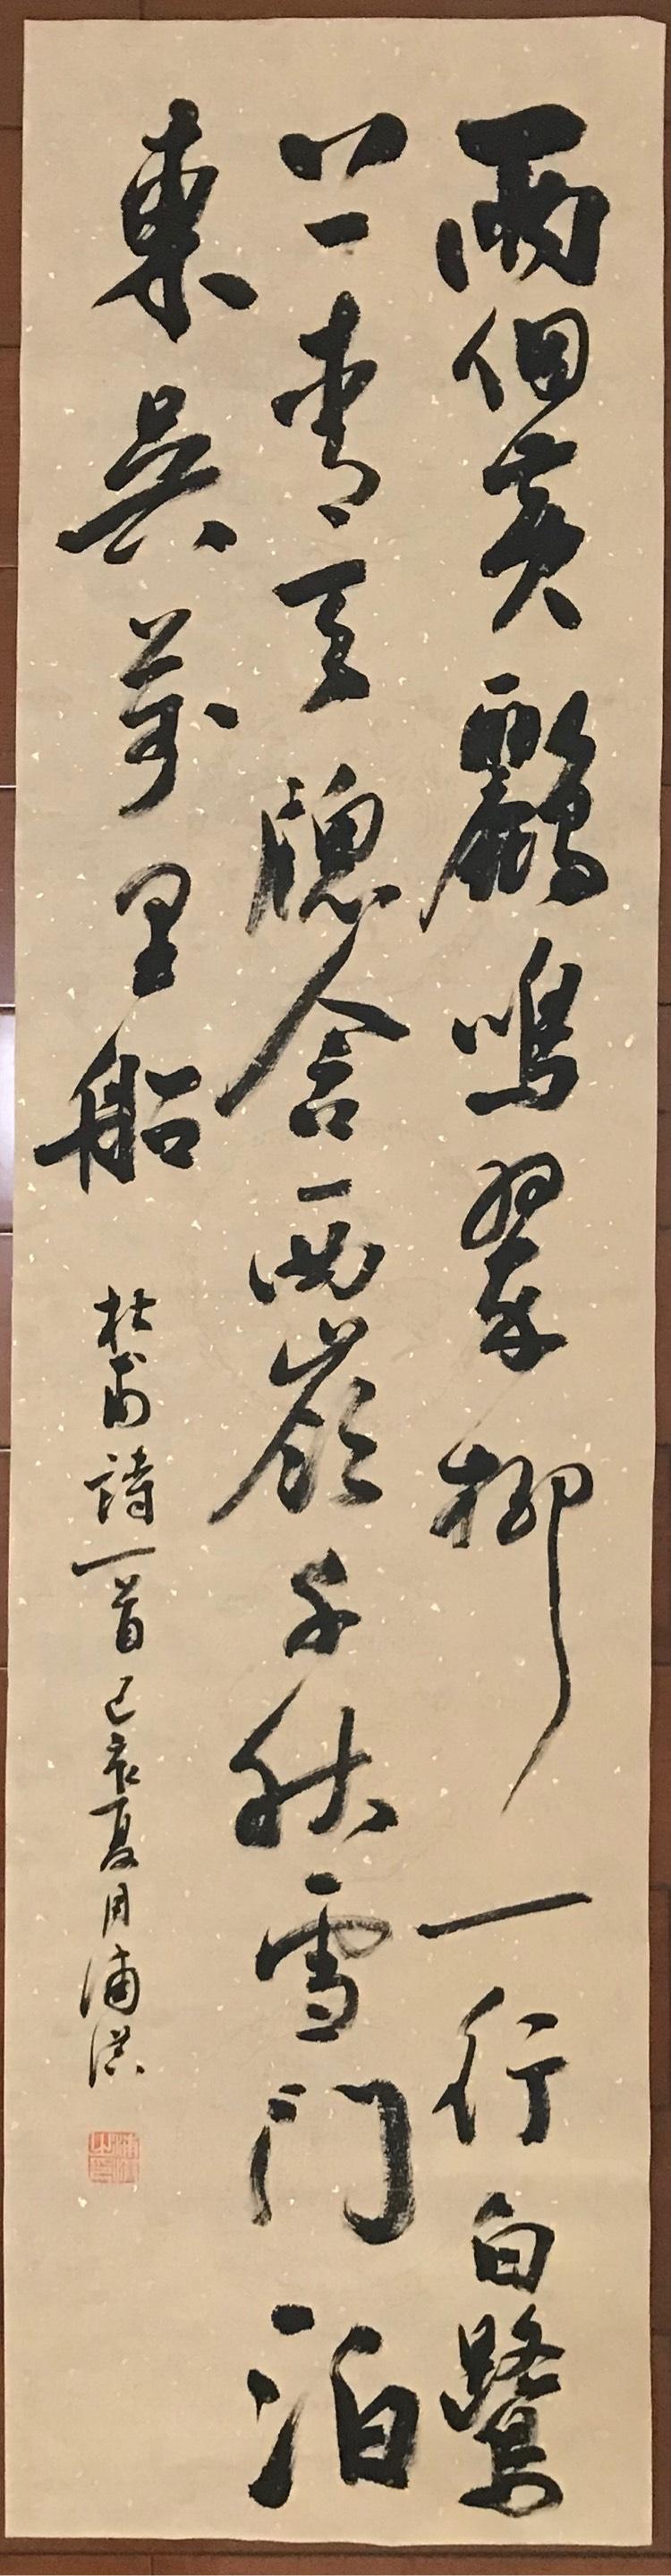 兩個黃鸝鳴翠柳一行白鷺
上青天窗含西嶺千秋雪門泊
東吳萬里船
杜甫詩一首己亥夏月浦洪